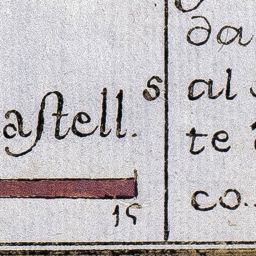 aſtell. s
15
da
al
te
co..